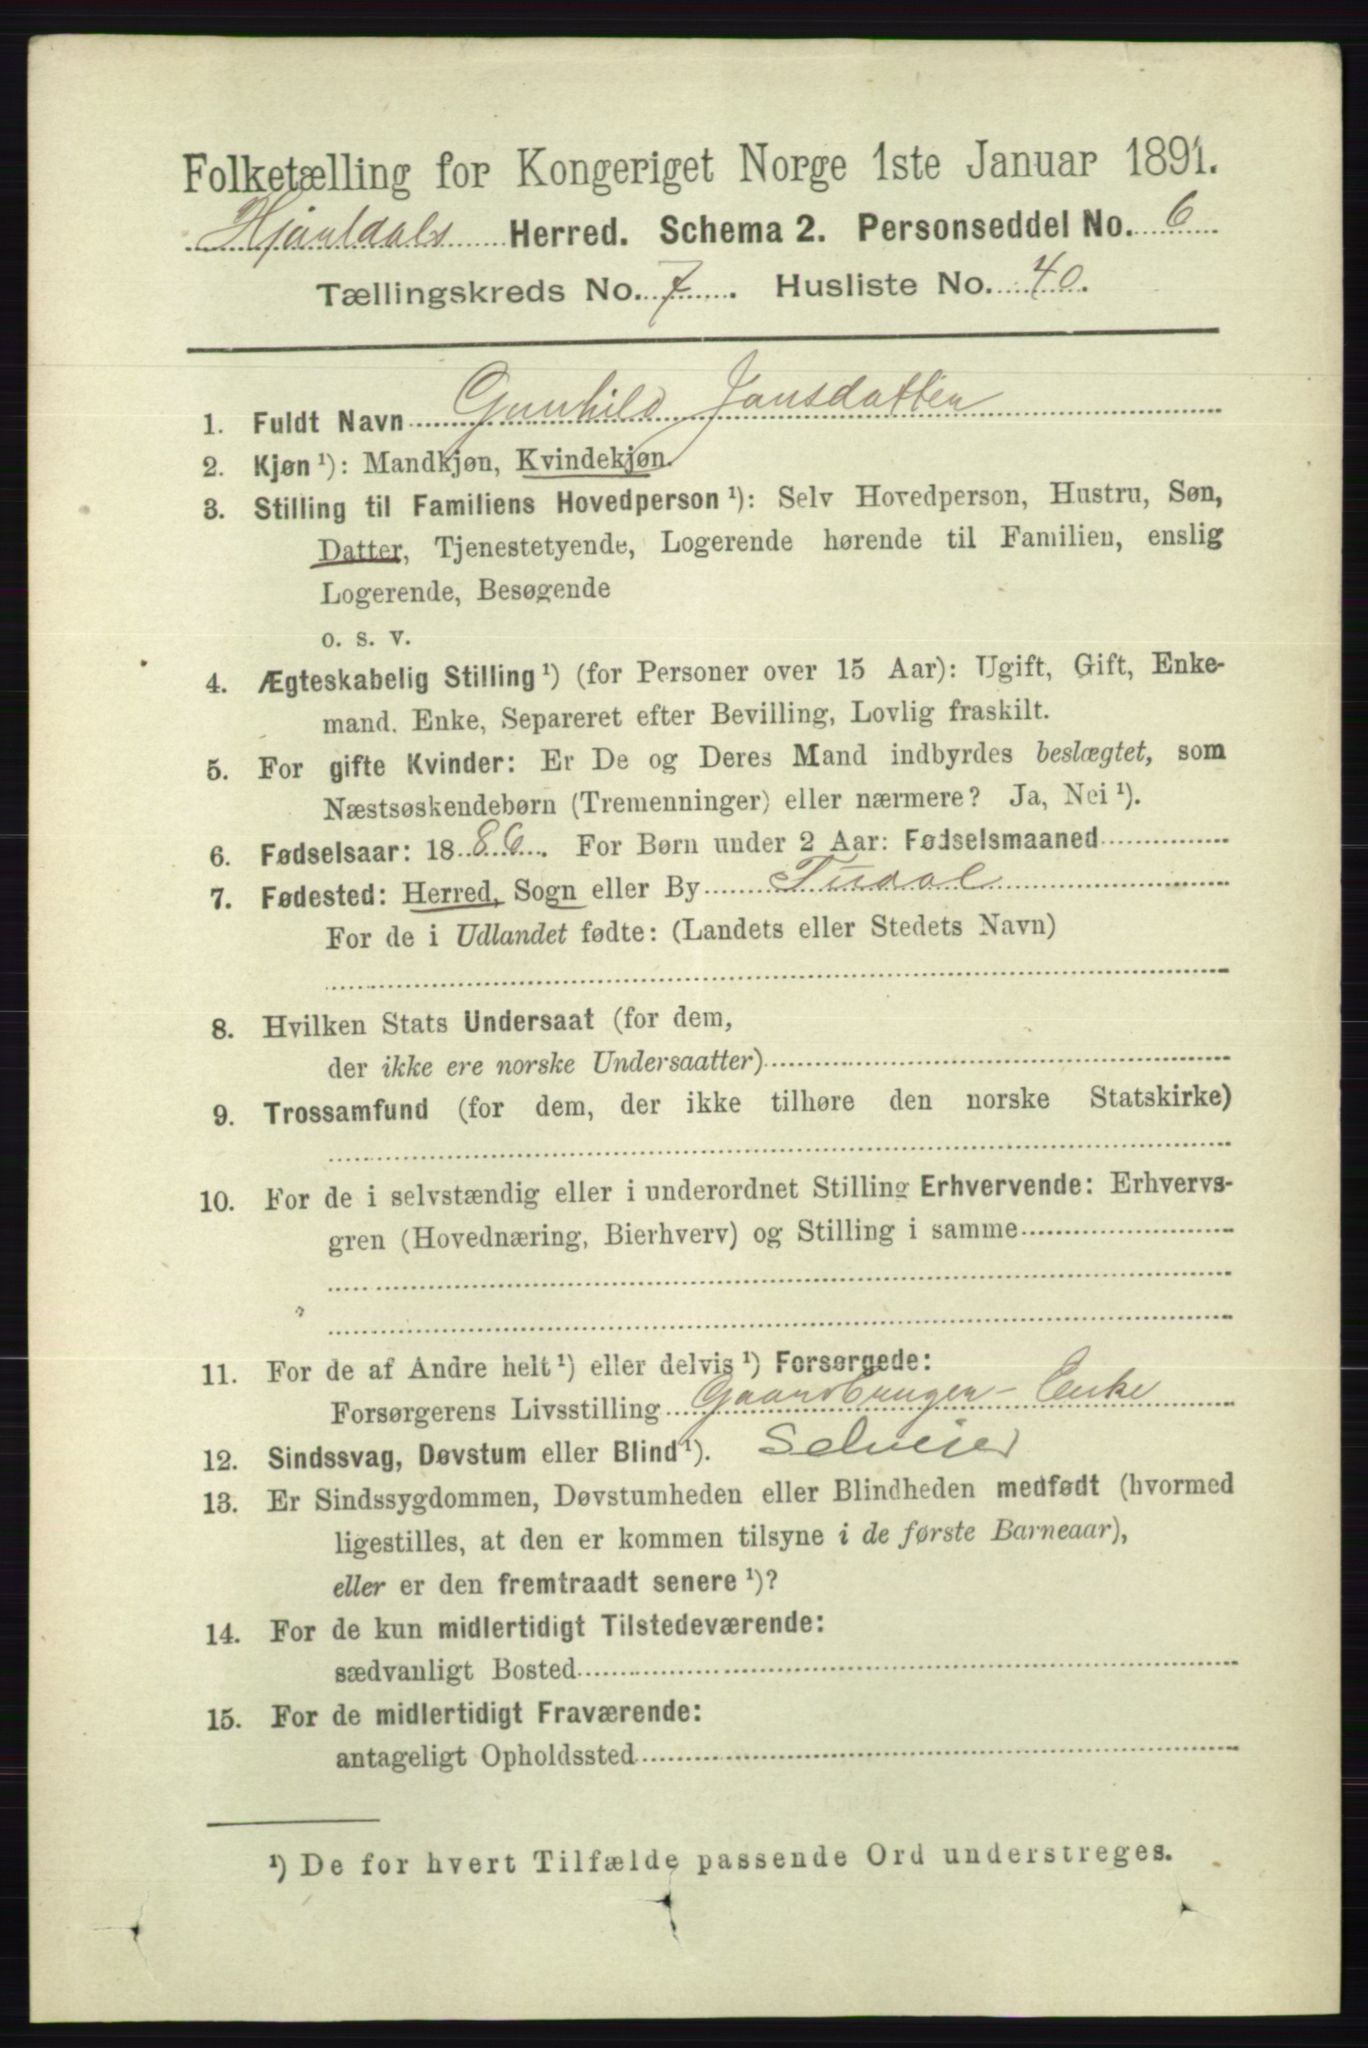 Folketælling for Kongeriget Norge 1ste Januar 1891.
Hjartdals Herred. Schema 2. Personseddel No. 6
Tællingskreds No. 7. Husliste No. 40.
1. Fuldt Navn Gunhild Jonsdatter
2. Kjøn ¹): Mandkjøn, Kvindekjøn.
3. Stilling til Familiens Hovedperson ¹): Selv Hovedperson, Hustru, Søn,
Datter, Tjenestetyende, Logerende hørende til Familien, enslig
Logerende, Besøgende
o. s. v.
4. Ægteskabelig Stilling ¹) (for Personer over 15 Aar): Ugift, Gift, Enke-
mand. Enke, Separeret efter Bevilling, Lovlig fraskilt.
5. For gifte Kvinder: Er De og Deres Mand indbyrdes beslægtet, som
Næstsøskendebørn (Tremenninger) eller nærmere? Ja, Nei ¹).
6. Fødselsaar: 1886. For Børn under 2 Aar: Fødselsmaaned
7. Fødested: Herred, Sogn eller By Tudal
For de i Udlandet fødte: (Landets eller Stedets Navn)
8. Hvilken Stats Undersaat (for dem,
der ikke ere norske Undersaatter)
9. Trossamfund (for dem, der ikke tilhøre den norske Statskirke)
10. For de i selvstændig eller i underordnet Stilling Erhvervende: Erhvervs-
gren (Hovednæring, Bierhverv) og Stilling i samme
11. For de af Andre helt ¹) eller delvis ¹) Forsørgede:
Forsørgerens Livsstilling Gaardbruger-Enke
12. Sindssvag, Døvstum eller Blind ¹). Selveier
13. Er Sindssygdommen, Døvstumheden eller Blindheden medfødt (hvormed
ligestilles, at den er kommen tilsyne i de første Barneaar),
eller er den fremtraadt senere ¹)?
14. For de kun midlertidigt Tilstedeværende:
sædvanligt Bosted
15. For de midlertidigt Fraværende:
antageligt Opholdssted
¹) De for hvert Tilfælde passende Ord understreges.